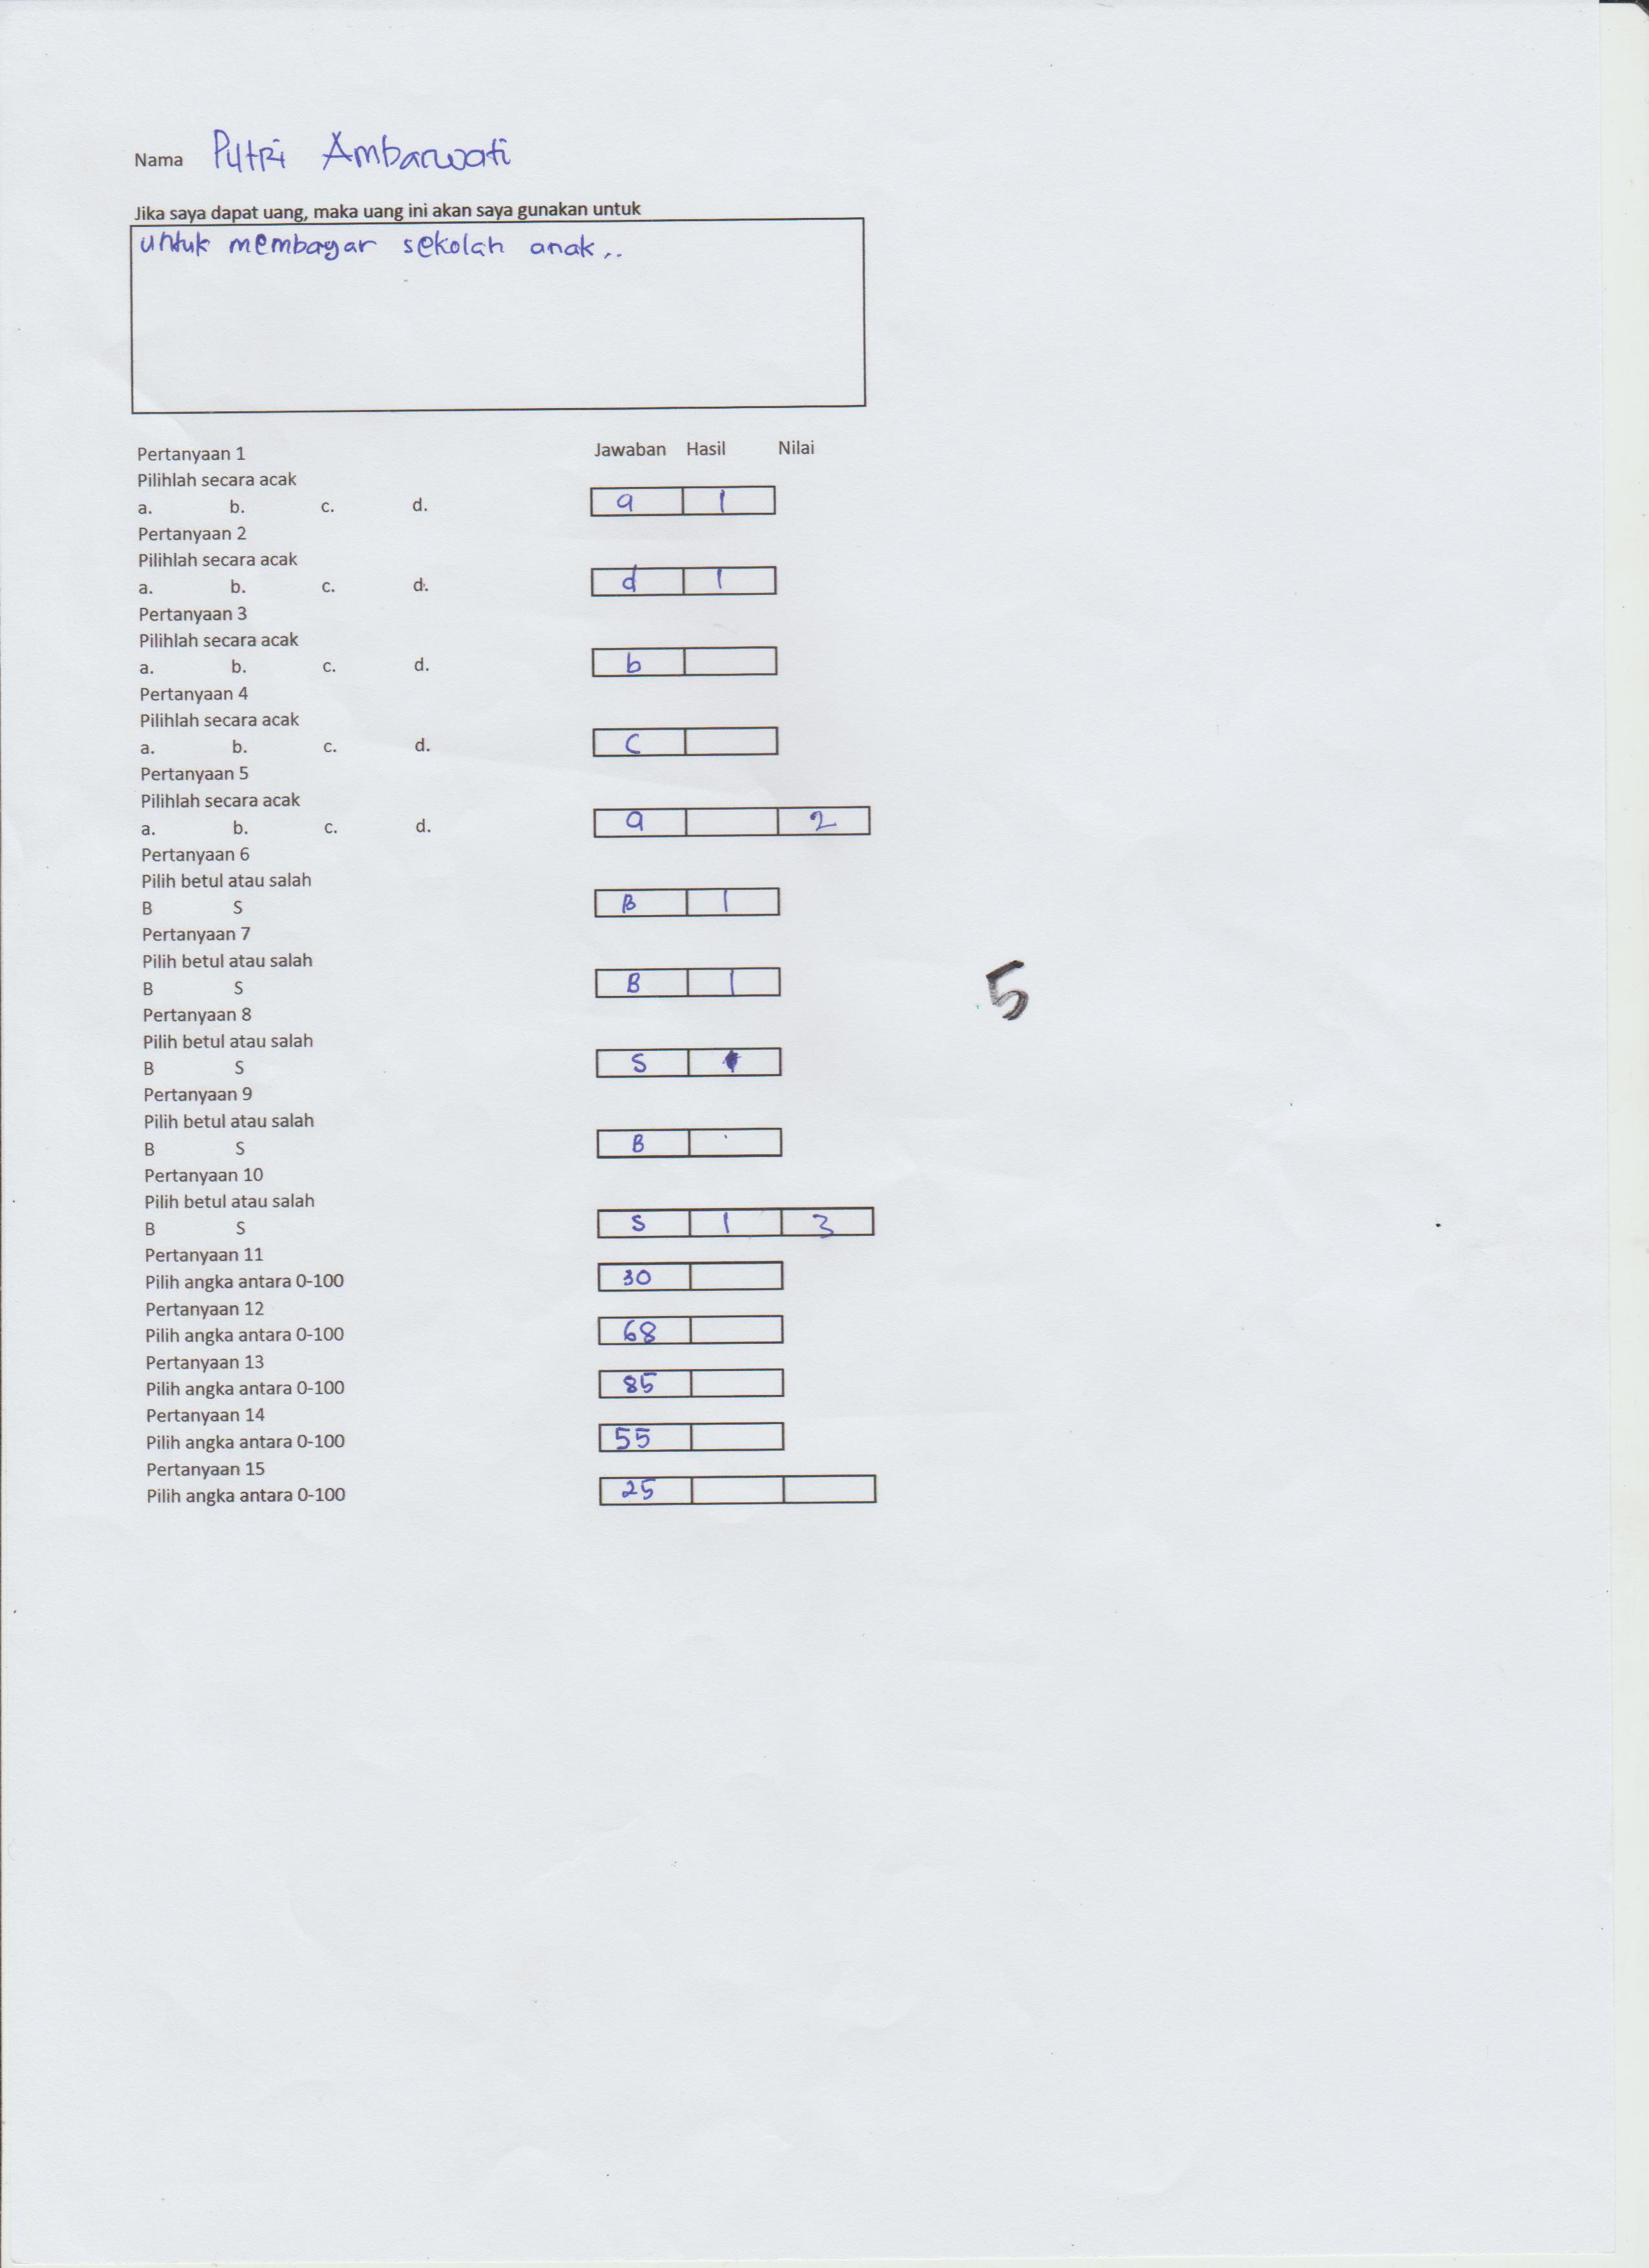 Nama Putri Ambarwati
Jika saya dapat uang, maka uang ini akan saya gunakan untuk
untuk membayar sekolah anak..
Pertanyaan 1 Jawaban Hasil Nilai
Pilihlah secara acak
a. b. c. d. a 1
Pertanyaan 2
Pilihlah secara acak
a. b. c. d. d 1
Pertanyaan 3
Pilihlah secara acak
a. b. c. d. b
Pertanyaan 4
Pilihlah secara acak
a. b. c. d. c
Pertanyaan 5
Pilihlah secara acak
a. b. c. d. a 2
Pertanyaan 6
Pilih betul atau salah
B S B 1
Pertanyaan 7
Pilih betul atau salah
B S B 1
5
Pertanyaan 8
Pilih betul atau salah
B S S
Pertanyaan 9
Pilih betul atau salah
B S B
Pertanyaan 10
Pilih betul atau salah
B S S 1 3
Pertanyaan 11
Pilih angka antara 0-100 30
Pertanyaan 12
Pilih angka antara 0-100 68
Pertanyaan 13
Pilih angka antara 0-100 85
Pertanyaan 14
Pilih angka antara 0-100 55
Pertanyaan 15
Pilih angka antara 0-100 25